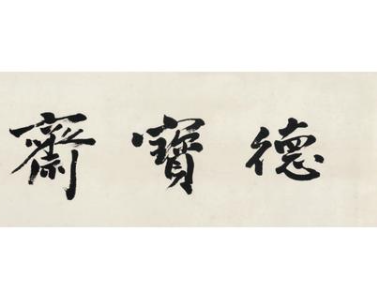 德寶齋